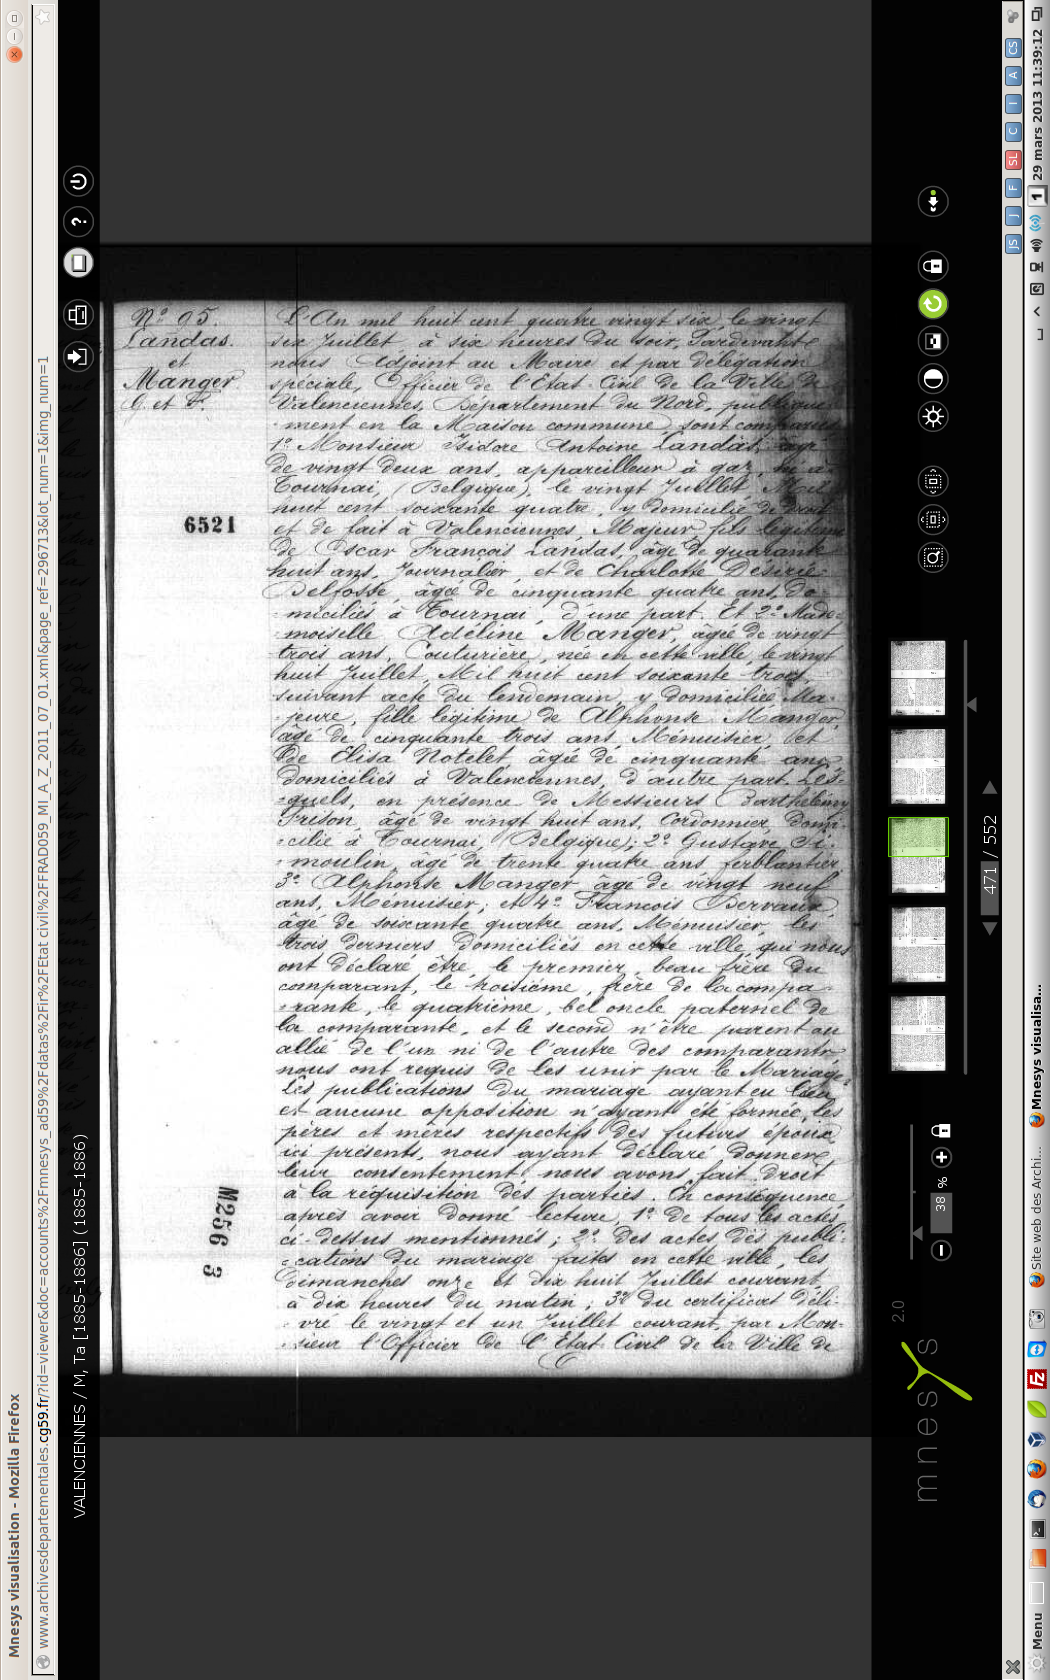 Mnesys visualisation - Mozilla Firefox
www.archivesdepartementales.cg59.fr/?id=viewer&doc=accounts%2Fmnesys_ad59%2Fdatas%2Fir%2FEtat civil%2FFRAD059_MI_A_Z_2011_07_01.xml&page_ref=296713&lot_num=1&img_num=1
VALENCIENNES / M, Ta [1885-1886] (1885-1886)
?
N° 95.
Landas.
et
Manger
G. et F.
6521
M256 3
L'An mil huit cent quatre vingt six, le vingt
six Juillet à six heures du soir, Pardevant
nous Adjoint au Maire et par délégation
spéciale, Officier de l'Etat-Civil de la Ville de
Valenciennes, Département du Nord, publique
-ment en la Maison commune, sont comparus
1° Monsieur Isidore Antoine Landas, âgé
de vingt deux ans, appareilleur à gaz, né à
Tournai, (Belgique), le vingt Juillet Mil
huit cent soixante quatre, y domicilié de droit
et de fait à Valenciennes, Majeur, fils légitime
de Oscar François Landas, âgé de quarante
huit ans, Journalier, et de Charlotte Désirée
Delfosse, âgée de cinquante quatre ans, Do-
-miciliés à Tournai, d'une part. Et 2° Made-
-moiselle Adeline Manger, âgée de vingt
trois ans, Couturière, née en cette ville, le vingt
huit Juillet, Mil huit cent soixante trois,
suivant acte du lendemain, y domiciliée, Ma-
-jeure, fille légitime de Alphonse Manger,
âgé de cinquante trois ans, Menuisier, et
de Elisa Notelet âgée de cinquante ans,
domiciliés à Valenciennes, d'autre part. Les-
-quels, en présence de Messieurs Barthélémy
Frison, âgé de vingt huit ans, Cordonnier, domi-
-cilié à Tournai, (Belgique); 2° Gustave Si-
-moulin, âgé de trente quatre ans, ferblantier,
3° Alphonse Manger, âgé de vingt neuf
ans, Menuisier; et 4° François Bervaux,
âgé de soixante quatre ans, Menuisier, les
trois derniers domiciliés en cette ville, qui nous
ont déclaré être, le premier, beau frère du
comparant, le troisième, frère de la compa-
-rante, le quatrième, bel oncle paternel de
la comparante, et le second n'être parent ou
allié de l'un ni de l'autre des comparants
nous ont requis de les unir par le Mariage.
Les publications du mariage ayant eu lieu
et aucune opposition n'ayant été formée, les
pères et mères respectifs des futurs époux,
ici présents, nous ayant déclaré donner
leur consentement, nous avons fait droit
à la réquisition des parties. En conséquence
après avoir donné lecture, 1° de tous les actes
ci-dessus mentionnés; 2° des actes des publi-
-cations du mariage faites en cette ville, les
dimanches onze et dix huit Juillet courant
à dix heures du matin; 3° du certificat déli-
-vré le vingt et un Juillet courant, par Mon-
-sieur l'Officier de l'Etat-Civil de la Ville de
471 / 552
38 %
mnesys 2.0
JS J F SL C I A CS
Menu
Site web des Archi...
Mnesys visualisa...
1
29 mars 2013 11:39:12